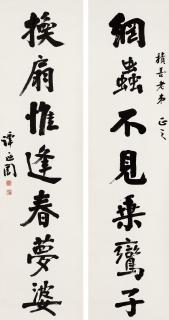 積喜老弟 正之
網蟲不見乗鸞子
換扇惟逢春夢婆
譚延闓